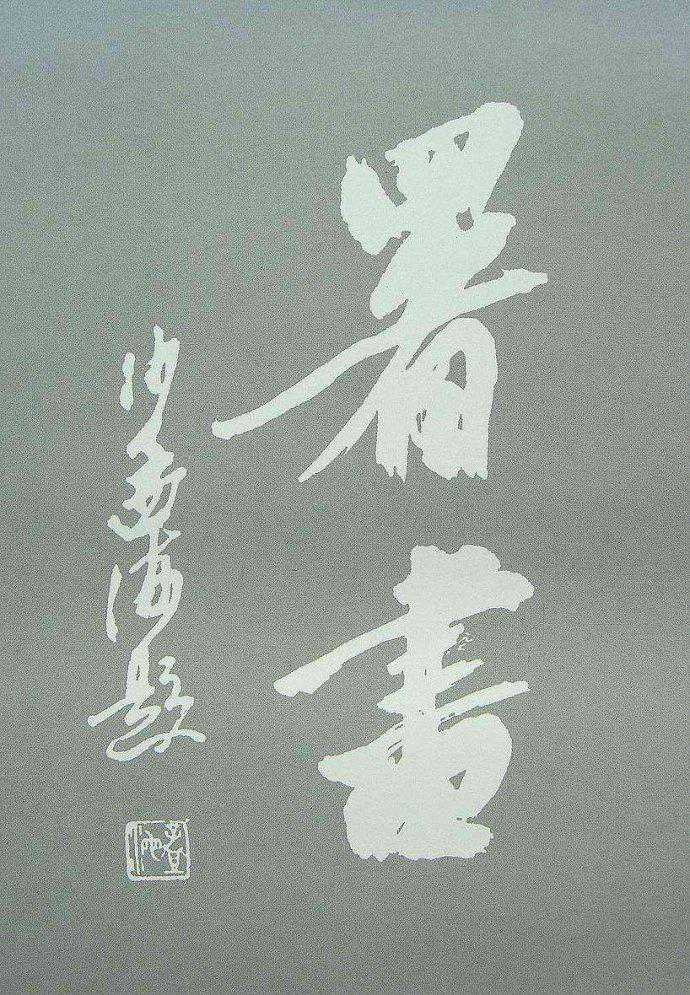 署書
沙孟海題